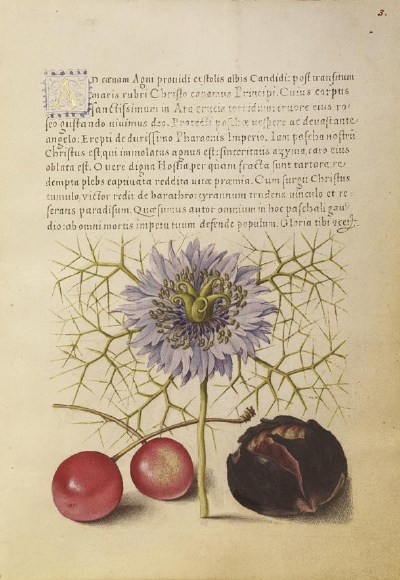 3.
AD cœnam Agni prouidi et stolis albis Candidi: post transitum
maris rubri Christo canamus Principi. Cuius corpus
sanctissimum in Ara crucis torridum: cruore eius ro-
seo gustando viuimus deo. Protecti paschæ vespere ac deuastante
angelo: Erepti de durissimo Pharaonis Imperio. Iam pascha nostrū
Christus est, qui immolatus agnus est: sinceritatis azyma, caro eius
oblata est. O vere digna Hostia, per quam fracta sunt tartara, re-
dempta plebs captiuata reddita vitæ præmia. Cum surgit Christus
tumulo, victor redit de barathro: tyrannum trudens vinculo et re-
serans paradisum. Quæsumus autor omnium in hoc paschali gau-
dio: ab omni mortis impetu tuum defende populum. Gloria tibi